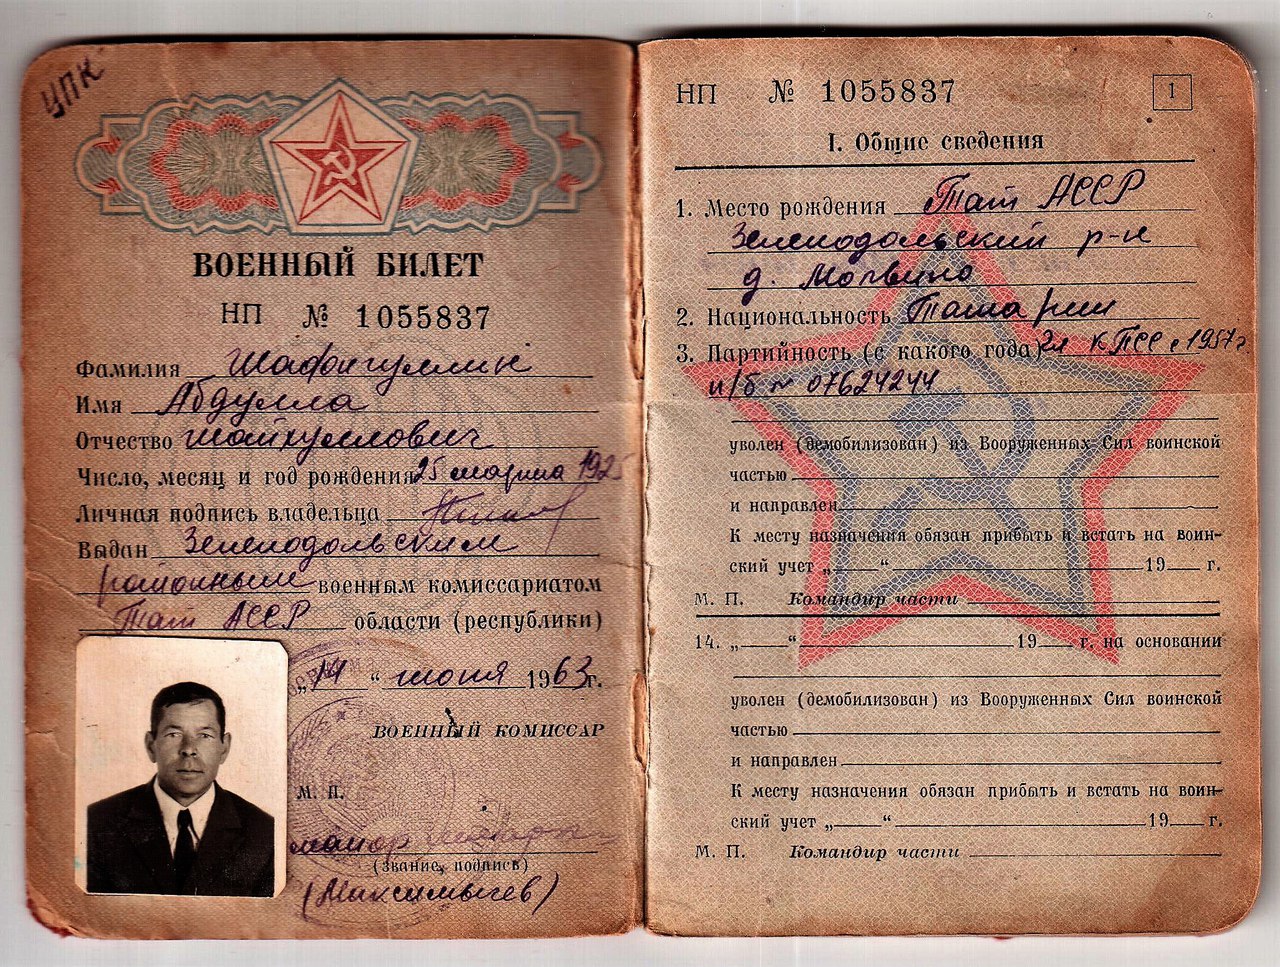 УПК
ВОЕННЫЙ БИЛЕТ
НП № 1055837
Фамилия Шафигуллин
Имя Абдулла
Отчество Шайхуллович
Число, месяц и год рождения 25 марта 1925
Личная подпись владельца
Выдан Зеленодольским
районным военным комиссариатом
Тат АССР области (республики)
„14“ июня 1963 г.
ВОЕННЫЙ КОМИССАР
М. П.
майор
(звание, подпись)
(Максимычев)
НП № 1055837
1
I. Общие сведения
1. Место рождения Тат АССР
Зеленодольский р-н
д. Молвино
2. Национальность Татарин
3. Партийность (с какого года) чл КПСС с 1957 г.
п/б № 07624244
уволен (демобилизован) из Вооруженных Сил воинской
частью
и направлен
К месту назначения обязан прибыть и встать на воин-
ский учет „ “ 19 г.
М. П. Командир части
14. „ “ 19 г. на основании
уволен (демобилизован) из Вооруженных Сил воинской
частью
и направлен
К месту назначения обязан прибыть и встать на воин-
ский учет „ “ 19 г.
М. П. Командир части